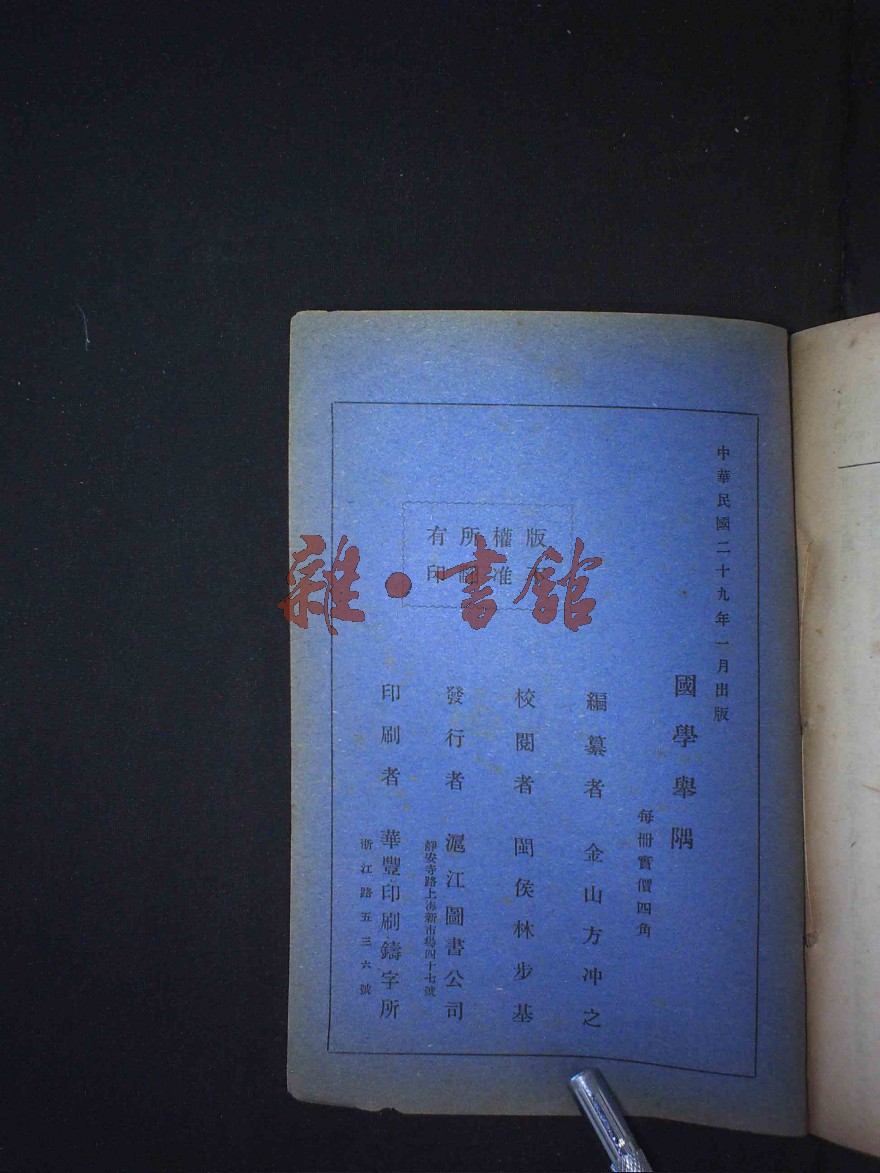 中華民國二十九年一月出版
國學舉隅
每冊實價四角
編纂者 金山方冲之
校閱者 閩侯林步基
發行者 滬江圖書公司
靜安寺路上海新市場四十七號
印刷者 華豐印刷鑄字所
浙江路五三六號
版權所有
不准翻印
雜·書館